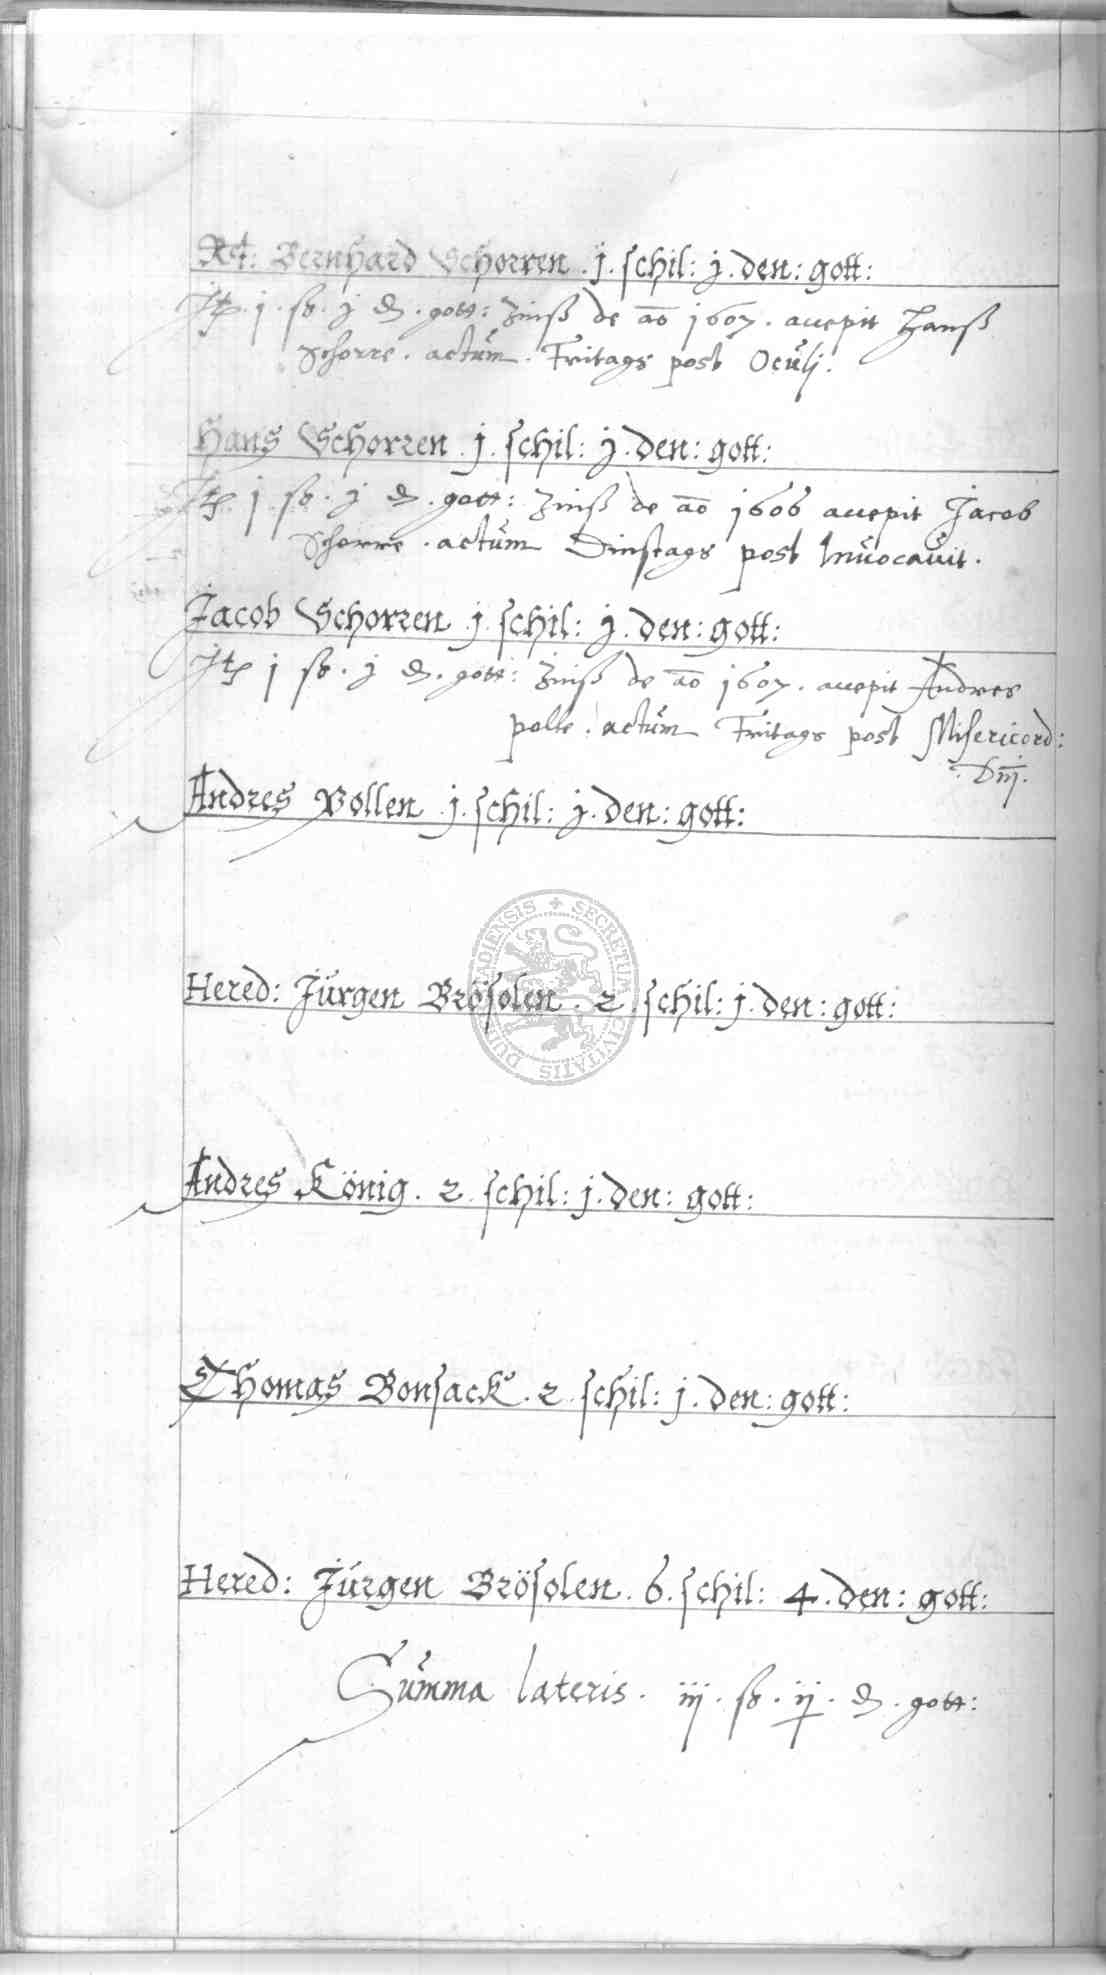 Rt: Bernhard Schorren . j . schil: j . den: gott:
Jt. j . ß . j đ . gott: Zinß de ao 1607 . accepit Hanß
Schorre . actum . Fritags post Oculj .
Hans Schorren . j . schil: j . den: gott:
Jt. j . ß . j đ . gott: Zinß de ao 1606 accepit Jacob
Schorre . actum Dinstags post Invocavit .
Jacob Schorren . j . schil: j . den: gott:
Jt j ß . j đ . gott: Zinß de ao 1607 . accepit Andres
polle . actum Fritags post Misericord:
Dnj .
Andres Pollen . j . schil: j . den: gott:
Hered: Jürgen Brösolen . 2 . schil: j . den: gott:
SECRETUM CIVITATIS
Andres König . 2 . schil: j . den: gott:
Thomas Bonsack . 2 . schil: j . den: gott:
Hered: Jürgen Brösolen . 6 . schil: 4 . den: gott:
Summa lateris . iij . ß . ij . đ . gott: